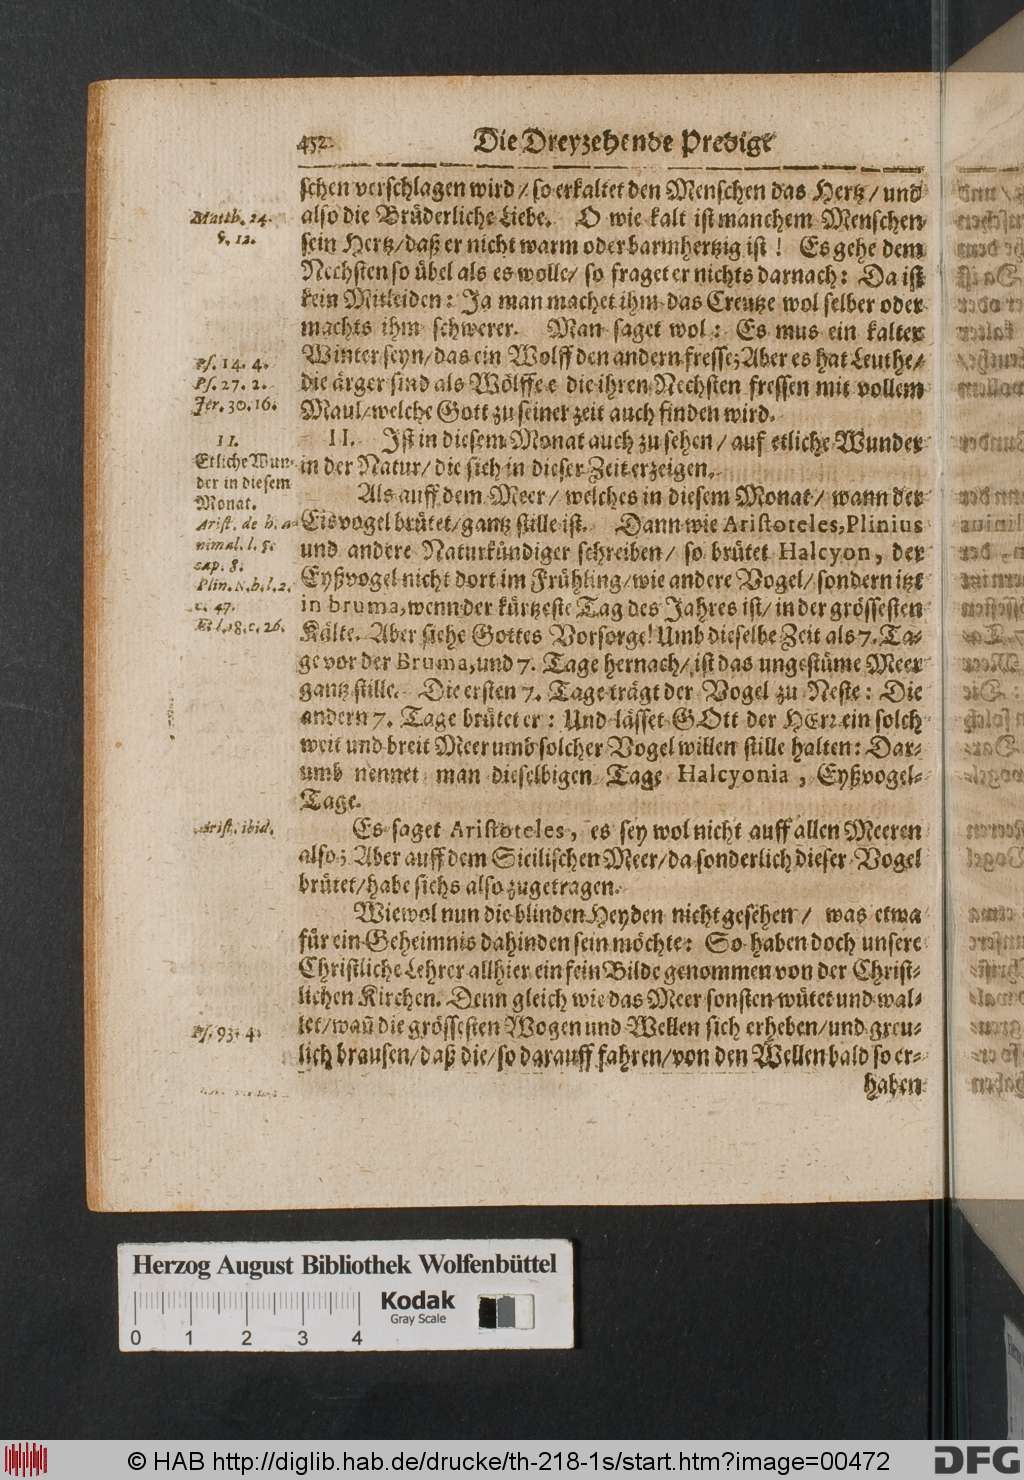 452 Die Dreyzehende Predigt
schen verschlagen wird/ so erkaltet den Menschen das Hertz/ und
also die Brüderliche Liebe. O wie kalt ist manchem Menschen
sein Hertz/ daß er nicht warm oder barmhertzig ist! Es gehe dem
Nechsten so übel als es wolle/ so fraget er nichts darnach: Da ist
kein Mitleiden: Ja man machet ihm das Creutze wol selber oder
machts ihm schwerer. Man saget wol: Es mus ein kalter
Winter seyn/ das ein Wolff den andern fresse; Aber es hat Leuthe/
die ärger sind als Wölffe: die ihren Nechsten fressen mit vollem
Maul/ welche Gott zu seiner zeit auch finden wird.
II. Ist in diesem Monat auch zu sehen/ auf etliche Wunder
in der Natur/ die sich in dieser Zeit erzeigen.
Als auff dem Meer/ welches in diesem Monat/ wann der
Eisvogel brütet/ gantz stille ist. Dann wie Aristoteles, Plinius
und andere Naturkündiger schreiben/ so brütet Halcyon, der
Eyßvogel nicht dort im Frühling/ wie andere Vogel/ sondern itzt
in bruma, wenn der kürtzeste Tag des Jahres ist/ in der grössesten
Kälte. Aber siehe Gottes Vorsorge! Umb dieselbe Zeit als 7. Ta-
ge vor der Bruma, und 7. Tage hernach/ ist das ungestüme Meer
gantz stille. Die ersten 7. Tage trägt der Vogel zu Neste: Die
andern 7. Tage brütet er: Und lässet GOtt der HErr ein solch
weit und breit Meer umb solcher Vogel willen stille halten: Dar-
umb nennet man dieselbigen Tage Halcyonia, Eyßvogel-
Tage.
Es saget Aristoteles, es sey wol nicht auff allen Meeren
also; Aber auff dem Sicilischen Meer/ da sonderlich dieser Vogel
brütet/ habe sichs also zugetragen.
Wiewol nun die blinden Heyden nicht gesehen/ was etwa
für ein Geheimnis dahinden sein möchte: So haben doch unsere
Christliche Lehrer allhier ein fein Bilde genommen von der Christ-
lichen Kirchen. Denn gleich wie das Meer sonsten wütet und wal-
let/ wañ die grössesten Wogen und Wellen sich erheben/ und greu-
lich brausen/ daß die/ so darauff fahren/ von den Wellen bald so er-
haben
Matth. 24.
v. 12.
Ps. 14. 4.
Ps. 27. 2.
Jer. 30. 16.
II.
Etliche Wun-
der in diesem
Monat.
Arist. de h. a-
nimal. l. 5.
cap. 8.
Plin. N. h. l. 2.
c. 47.
Et l. 18. c. 26.
Arist. ibid.
Ps. 93. 4.
Herzog August Bibliothek Wolfenbüttel
Kodak
Gray Scale
0 1 2 3 4
© HAB http://diglib.hab.de/drucke/th-218-1s/start.htm?image=00472
DFG